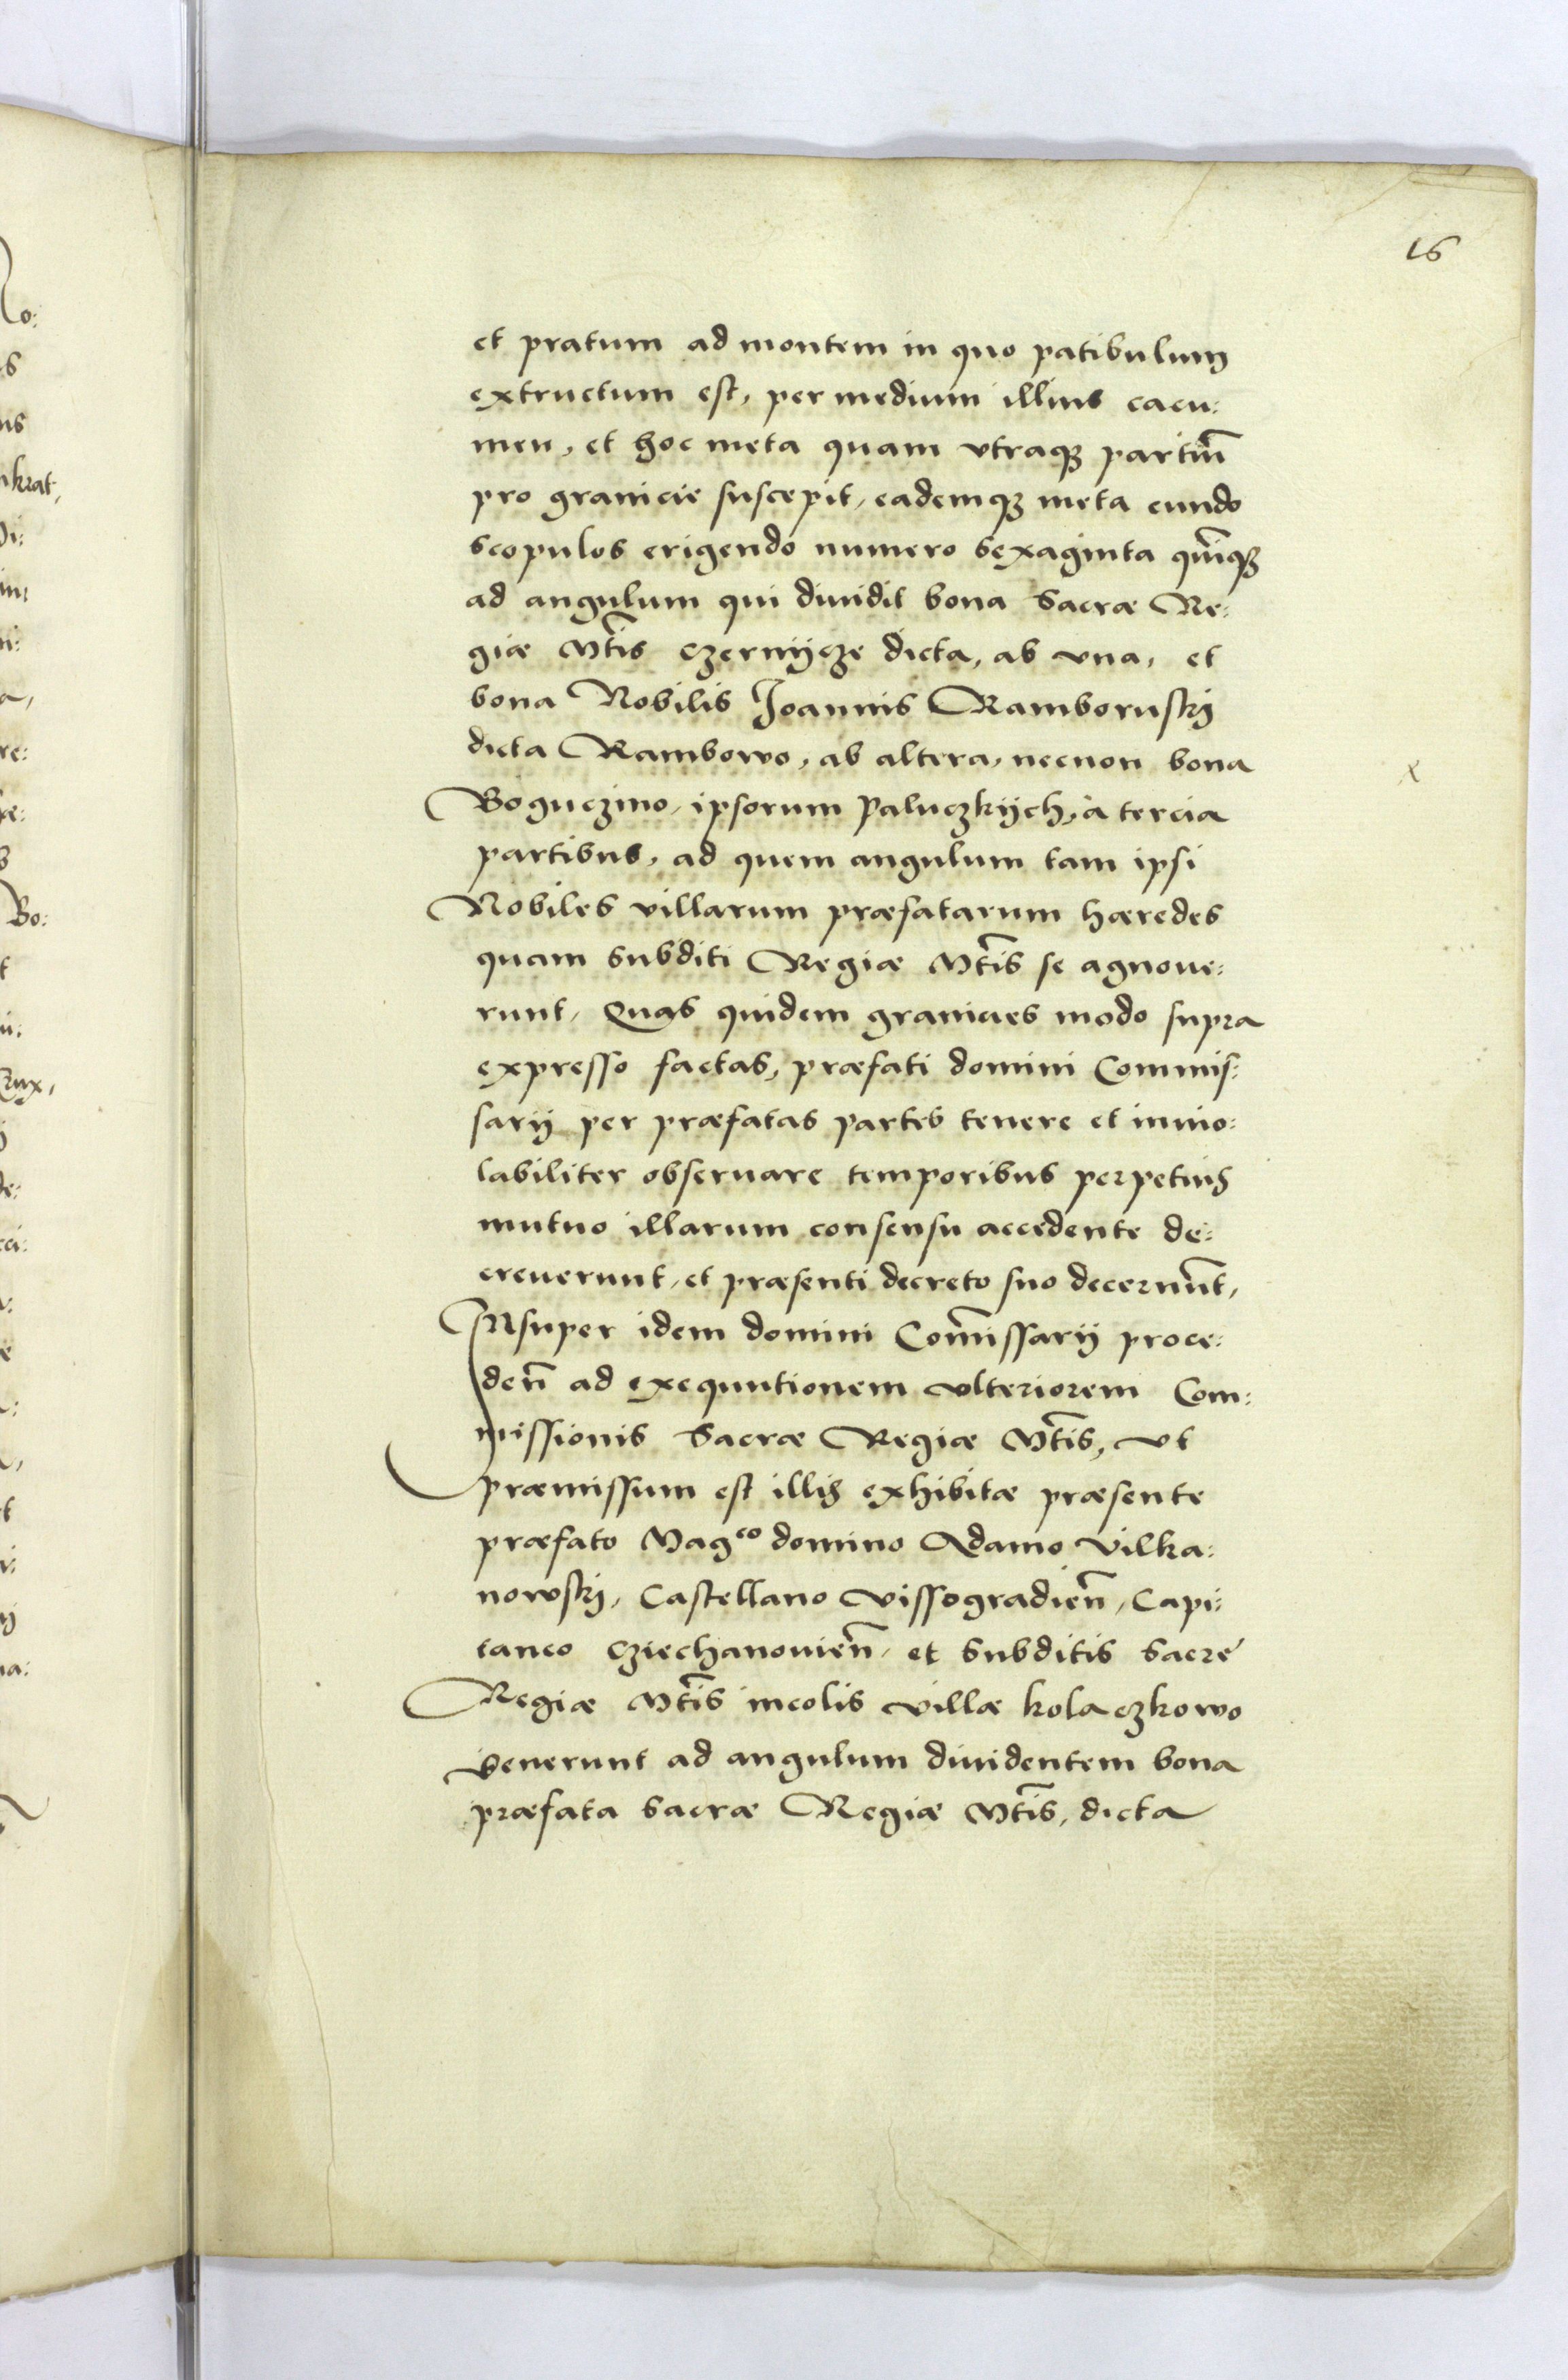 16
et pratum ad montem in quo patibulum
extructum est, per medium illius cacu:
men, et hoc meta quam vtraqꝫ partiū
pro granicie suscepit, eademqꝫ meta eundo
scopulos erigendo numero sexaginta quīqꝫ
ad angulum qui diuidit bona Sacræ Re:
giæ Mtis̃ Czernijcze dicta, ab vna, et
bona Nobilis Joannis Ramboruskij
dicta Rambowo, ab altera, necnon bona
Boguczino, ipsorum Paluczkijch, à tercia
partibus, ad quem angulum tam ipsi
Nobiles villarum præfatarum hæredes
quam subditi Regiæ Mtis̃ se agnoue:
runt, Quas quidem granicies modo supra
expresso factas, præfati domini Commis:
sarij per præfatas partes tenere et inuio:
labiliter obseruare temporibus perpetuis
mutuo illarum consensu accedente de:
creuerunt, et præsenti decreto suo decernūt,
INsuper idem domini Com̃issarij proce:
deñ ad exequutionem vlteriorem Com:
missionis Sacræ Regiæ Mtis̃, vt
præmissum est illis exhibitæ præsente
præfato Magco domino Adamo Vilka:
nowskij, Castellano Vissogradieñ, Capi:
taneo Cziechanouieñ, et subditis sacre
Regiæ Mtis̃ incolis villæ kolaczkowo
venerunt ad angulum diuidentem bona
præfata sacræ Regiæ Mtis̃, dicta